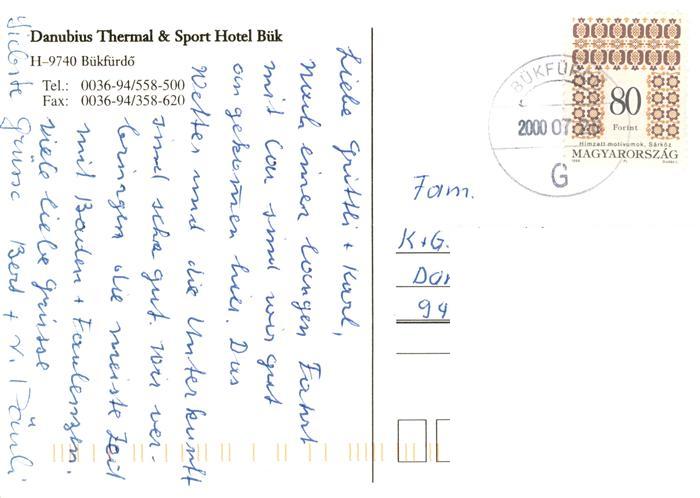 Danubius Thermal & Sport Hotel Bük
H–9740 Bükfürdő
Tel.: 0036-94/558-500
Fax: 0036-94/358-620
Liebe Gritli + Karl,
Nach einer langen Fahrt
mit Car sind wir gut
angekommen hier. Das
Wetter und die Unterkunft
sind sehr gut. Wir ver-
bringen die meiste Zeit
mit Baden + Faulenzen.
Viele liebe Grüsse
Grüsse Bert + V.
BÜKFÜ
2000 07
G
80
Forint
Hímzett motívumok, Sárköz
MAGYARORSZÁG
Fam.
K+G.
Dar
94